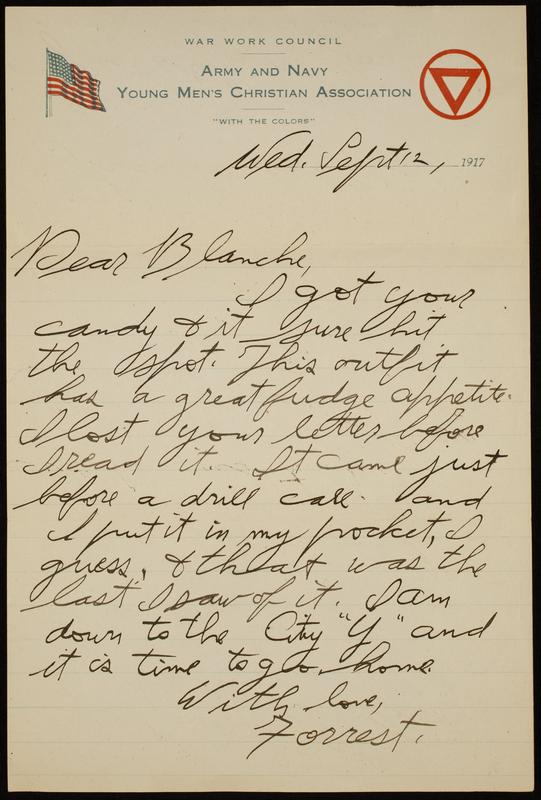 WAR WORK COUNCIL
ARMY AND NAVY
YOUNG MEN'S CHRISTIAN ASSOCIATION
"WITH THE COLORS"
Wed. Sept 12, 1917
Dear Blanche,
I got your
candy & it sure hit
the spot. This outfit
has a great fudge appetite.
I lost your letter before
I read it. It came just
before a drill call and
I put it in my pocket, I
guess, & that was the
last I saw of it. I am
down to the City "Y" and
it is time to go home.
With love,
Forrest.